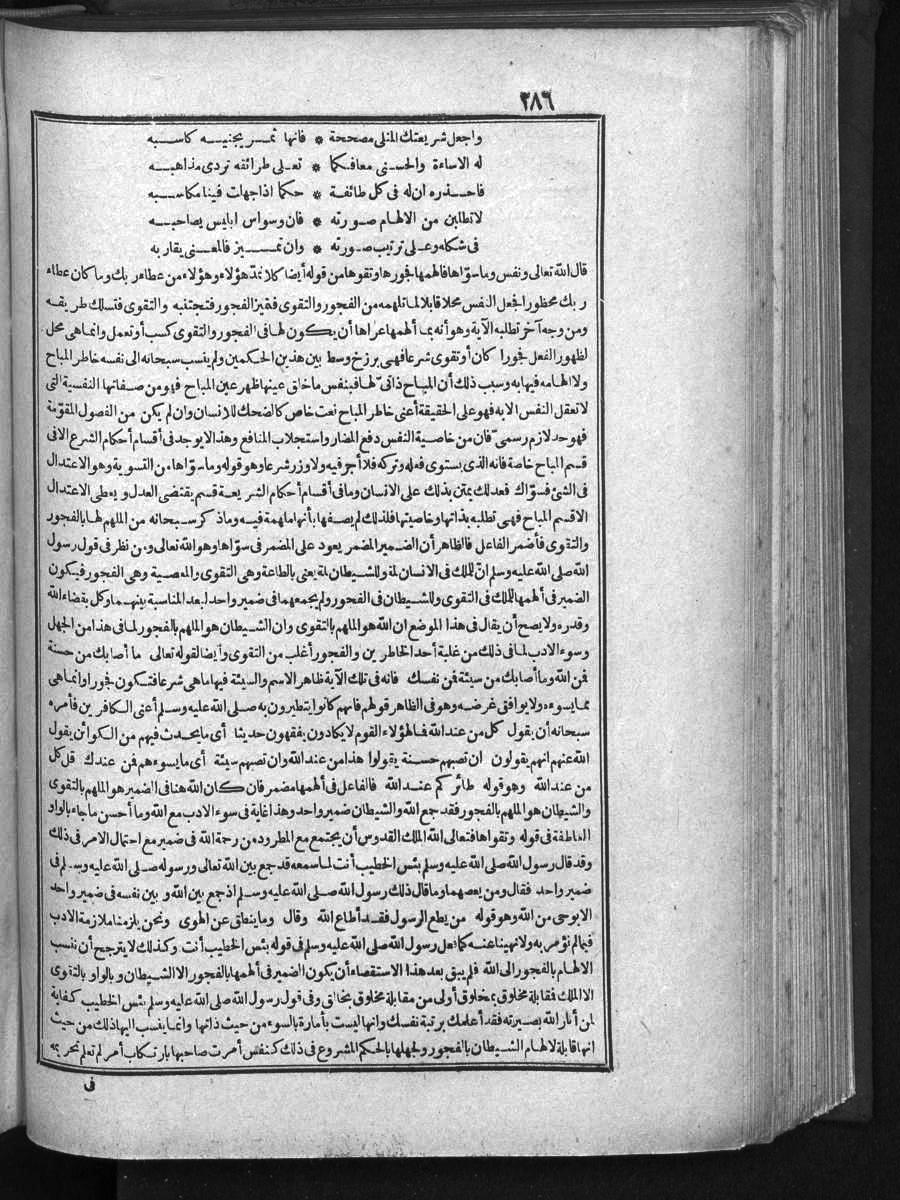 ٣٨٦
واجعل شريعتك المثلى مصححة * فانها ثمر يجنيه كاسبه
له الاساءة والحسنى معا فكما * تعلى طرائقه تردى مذاهبه
فاحذره ان له فى كل طائفة * حكما اذا جهلت فينا مكاسبه
لا تطلبن من الالهام صورته * فان وسواس ابليس يصاحبه
فى شكله وعلى ترتيب صورته * وان تميز فالمعنى يقاربه
قال الله تعالى ونفس وما سوّاها فالهمها فجورها وتقواها من قوله أيضا كلا نمدّ هؤلاء وهؤلاء من عطاء ربك وما كان عطاء
ربك محظورا فجعل النفس محلا قابلا لما تلهمه من الفجور والتقوى فتميز الفجور فتجتنبه والتقوى فتسلك طريقه
ومن وجه آخر تطلبه الآية وهو أنه بما ألهمها عراها أن يكون لها فى الفجور والتقوى كسب أو تعمل وانما هى محل
لظهور الفعل فجورا كان أو تقوى شرعا فهى برزخ وسط بين هذين الحكمين ولم ينسب سبحانه الى نفسه خاطر المباح
ولا الهامه فيها به وسبب ذلك أن المباح ذاتىّ لها فبنفس ما خلق عينها ظهر عين المباح فهو من صفاتها النفسية التى
لا تعقل النفس الا به فهو على الحقيقة أعنى خاطر المباح نعت خاص كالضحك للانسان وان لم يكن من الفصول المقوّمة
فهو حد لازم رسمىّ فان من خاصية النفس دفع المضار واستجلاب المنافع وهذا لا يوجد فى أقسام أحكام الشرع الا فى
قسم المباح خاصة فانه الذى يستوى فعله وتركه فلا أجر فيه ولا وزر شرعا وهو قوله وما سوّاها من التسوية وهو الاعتدال
فى الشئ فسوّاك فعدلك يمتن بذلك على الانسان وما فى أقسام أحكام الشريعة قسم يقتضى العدل ويعطى الاعتدال
الا قسم المباح فهى تطلبه بذاتها وخاصيتها فلذلك لم يصفها بأنها ملهمة فيه وما ذكر سبحانه من الملهم لها بالفجور
والتقوى فأضمر الفاعل فالظاهر أن الضمير المضمر يعود على المضمر فى سوّاها وهو الله تعالى ومن نظر فى قول رسول
الله صلى الله عليه وسلم انّ للملك فى الانسان لمة وللشيطان لمة يعنى بالطاعة وهى التقوى والمعصية وهى الفجور فيكون
الضمير فى ألهمها للملك فى التقوى وللشيطان فى الفجور ولم يجمعهما فى ضمير واحد لبعد المناسبة بينهما وكل بقضاء الله
وقدره ولا يصح أن يقال فى هذا الموضع ان الله هو الملهم بالتقوى وان الشيطان هو الملهم بالفجور لما فى هذا من الجهل
وسوء الادب لما فى ذلك من غلبة أحد الخاطرين والفجور أغلب من التقوى وأيضا لقوله تعالى ما أصابك من حسنة
فمن الله وما أصابك من سيئة فمن نفسك فانه فى تلك الآية ظاهر الاسم والسيئة فيها ما هى شرعا فتكون فجورا وانما هى
مما يسوءه ولا يوافق غرضه وهو فى الظاهر قولهم فانهم كانوا يتطيرون به صلى الله عليه وسلم أعنى الكافرين فأمره
سبحانه أن يقول كل من عند الله فما لهؤلاء القوم لا يكادون يفقهون حديثا أى ما يحدث فيهم من الكوائن يقول
الله عنهم انهم يقولون ان تصبهم حسنة يقولوا هذا من عند الله وان تصبهم سيئة أى ما يسوءهم فمن عندك قل كل
من عند الله وهو قوله طائركم عند الله فالفاعل فى ألهمها مضمر فان كان الله هنا فى الضمير هو الملهم بالتقوى
والشيطان هو الملهم بالفجور فقد جمع الله والشيطان ضمير واحد وهذا غاية فى سوء الادب مع الله وما أحسن ما جاء بالواو
العاطفة فى قوله وتقواها فتعالى الله الملك القدوس أن يجتمع مع المطرود من رحمة الله فى ضمير مع احتمال الامر فى ذلك
وقد قال رسول الله صلى الله عليه وسلم بئس الخطيب أنت لما سمعه قد جمع بين الله تعالى ورسوله صلى الله عليه وسلم فى
ضمير واحد فقال ومن يعصهما وما قال ذلك رسول الله صلى الله عليه وسلم اذ جمع بين الله و بين نفسه فى ضمير واحد
الا بوحى من الله وهو قوله من يطع الرسول فقد أطاع الله وقال وما ينطق عن الهوى ونحن يلزمنا ملازمة الادب
فيما لم نؤمر به ولا نهينا عنه كما فعل رسول الله صلى الله عليه وسلم فى قوله بئس الخطيب أنت وكذلك لا يترجح أن ننسب
الالهام بالفجور الى الله فلم يبق بعد هذا الاستقصاء أن يكون الضمير فى ألهمها بالفجور الا الشيطان وبالواو بالتقوى
الا الملك فقابلة مخلوق بمخلوق أولى من مقابلة مخلوق بخالق وفى قول رسول الله صلى الله عليه وسلم بئس الخطيب كفاية
لمن أنار الله بصيرته فقد أعلمك برتبة نفسك وانها ليست بأمارة بالسوء من حيث ذاتها وانما ينسب اليها ذلك من حيث
انها قابلة لالهام الشيطان بالفجور ولجهلها بالحكم المشروع فى ذلك كنفس أمرت صاحبها بارتكاب أمر لم تعلم تحريمه
فى